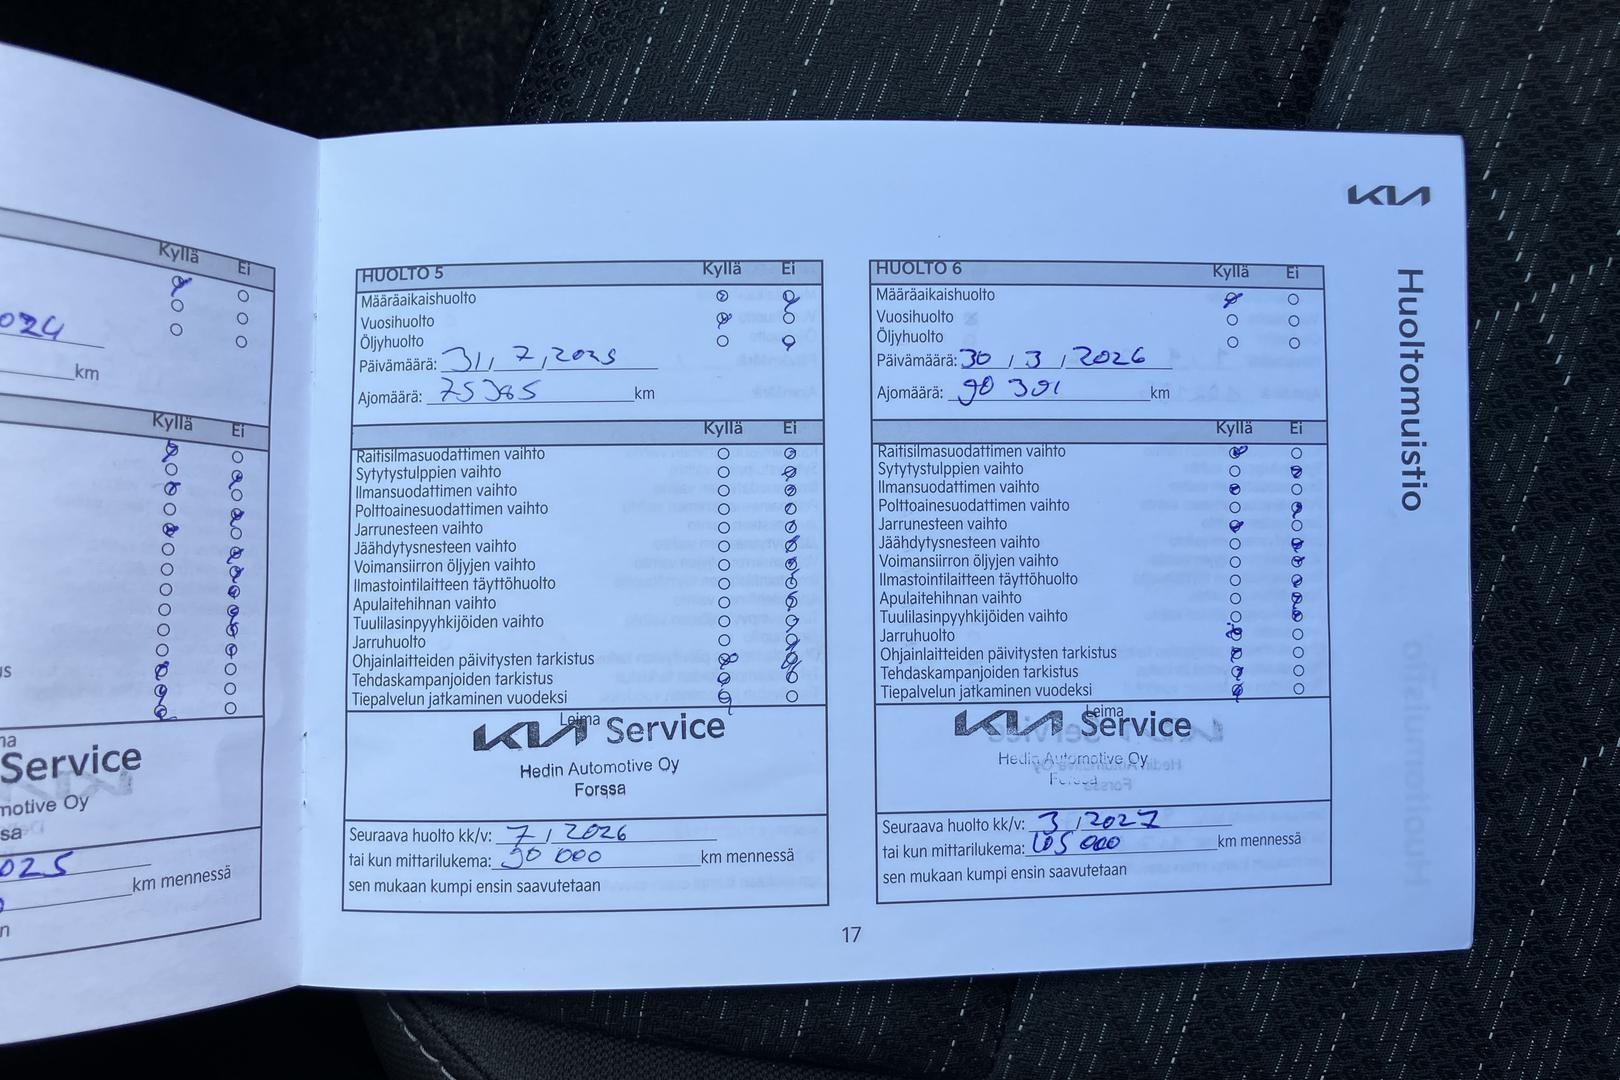 Kyllä Ei
024
km
Kyllä Ei
us
Service
motive Oy
ssa
025
km mennessä
n
KIA
Huoltomuistio
HUOLTO 5 Kyllä Ei
Määräaikaishuolto
Vuosihuolto
Öljyhuolto
Päivämäärä: 31, 7, 2025
Ajomäärä: 75 385 km
Kyllä Ei
Raitisilmasuodattimen vaihto
Sytytystulppien vaihto
Ilmansuodattimen vaihto
Polttoainesuodattimen vaihto
Jarrunesteen vaihto
Jäähdytysnesteen vaihto
Voimansiirron öljyjen vaihto
Ilmastointilaitteen täyttöhuolto
Apulaitehihnan vaihto
Tuulilasinpyyhkijöiden vaihto
Jarruhuolto
Ohjainlaitteiden päivitysten tarkistus
Tehdaskampanjoiden tarkistus
Tiepalvelun jatkaminen vuodeksi
Leima
KIA Service
Hedin Automotive Oy
Forssa
Seuraava huolto kk/v: 7 / 2026
tai kun mittarilukema: 90 000 km mennessä
sen mukaan kumpi ensin saavutetaan
HUOLTO 6 Kyllä Ei
Määräaikaishuolto
Vuosihuolto
Öljyhuolto
Päivämäärä: 30 / 3 / 2026
Ajomäärä: 90 301 km
Kyllä Ei
Raitisilmasuodattimen vaihto
Sytytystulppien vaihto
Ilmansuodattimen vaihto
Polttoainesuodattimen vaihto
Jarrunesteen vaihto
Jäähdytysnesteen vaihto
Voimansiirron öljyjen vaihto
Ilmastointilaitteen täyttöhuolto
Apulaitehihnan vaihto
Tuulilasinpyyhkijöiden vaihto
Jarruhuolto
Ohjainlaitteiden päivitysten tarkistus
Tehdaskampanjoiden tarkistus
Tiepalvelun jatkaminen vuodeksi
Leima
KIA Service
Hedin Automotive Oy
Forssa
Seuraava huolto kk/v: 3 / 2027
tai kun mittarilukema: 105 000 km mennessä
sen mukaan kumpi ensin saavutetaan
17